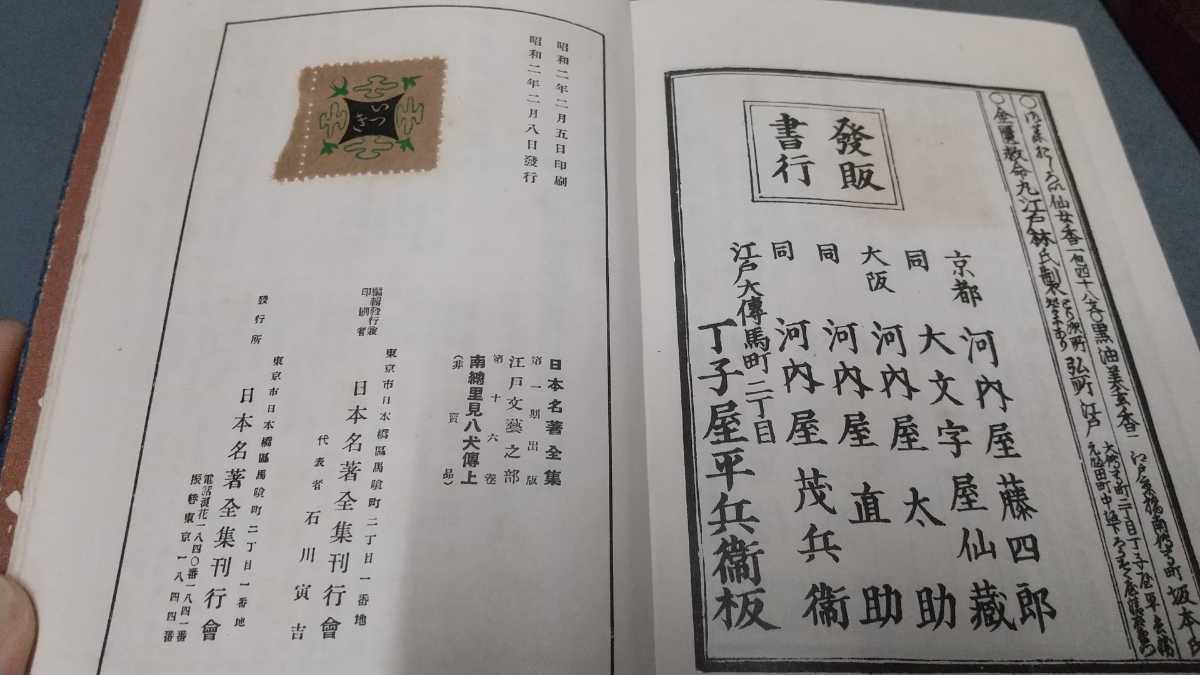 仙女香一包四十八文○黒油美玄香
江戸京橋南傳馬町 坂本氏
○金匱救命丸江戸林氏製
弘所 江戸
發販
書行
京都 河内屋藤四郎
同 大文字屋仙藏
大阪 河内屋太助
同 河内屋直助
同 河内屋茂兵衞
江戸大傳馬町二丁目
丁子屋平兵衞板
昭和二年二月五日印刷
昭和二年二月八日發行
いつき
日本名著全集
第一期出版
江戸文藝之部
第十六卷
南總里見八犬傳上
(非賣品)
編輯發行兼
印刷者
東京市日本橋區馬喰町二丁目一番地
日本名著全集刊行會
代表者 石川寅吉
發行所
東京市日本橋區馬喰町二丁目一番地
日本名著全集刊行會
電話浪花一八四〇番一八四一番
振替東京一八四四番